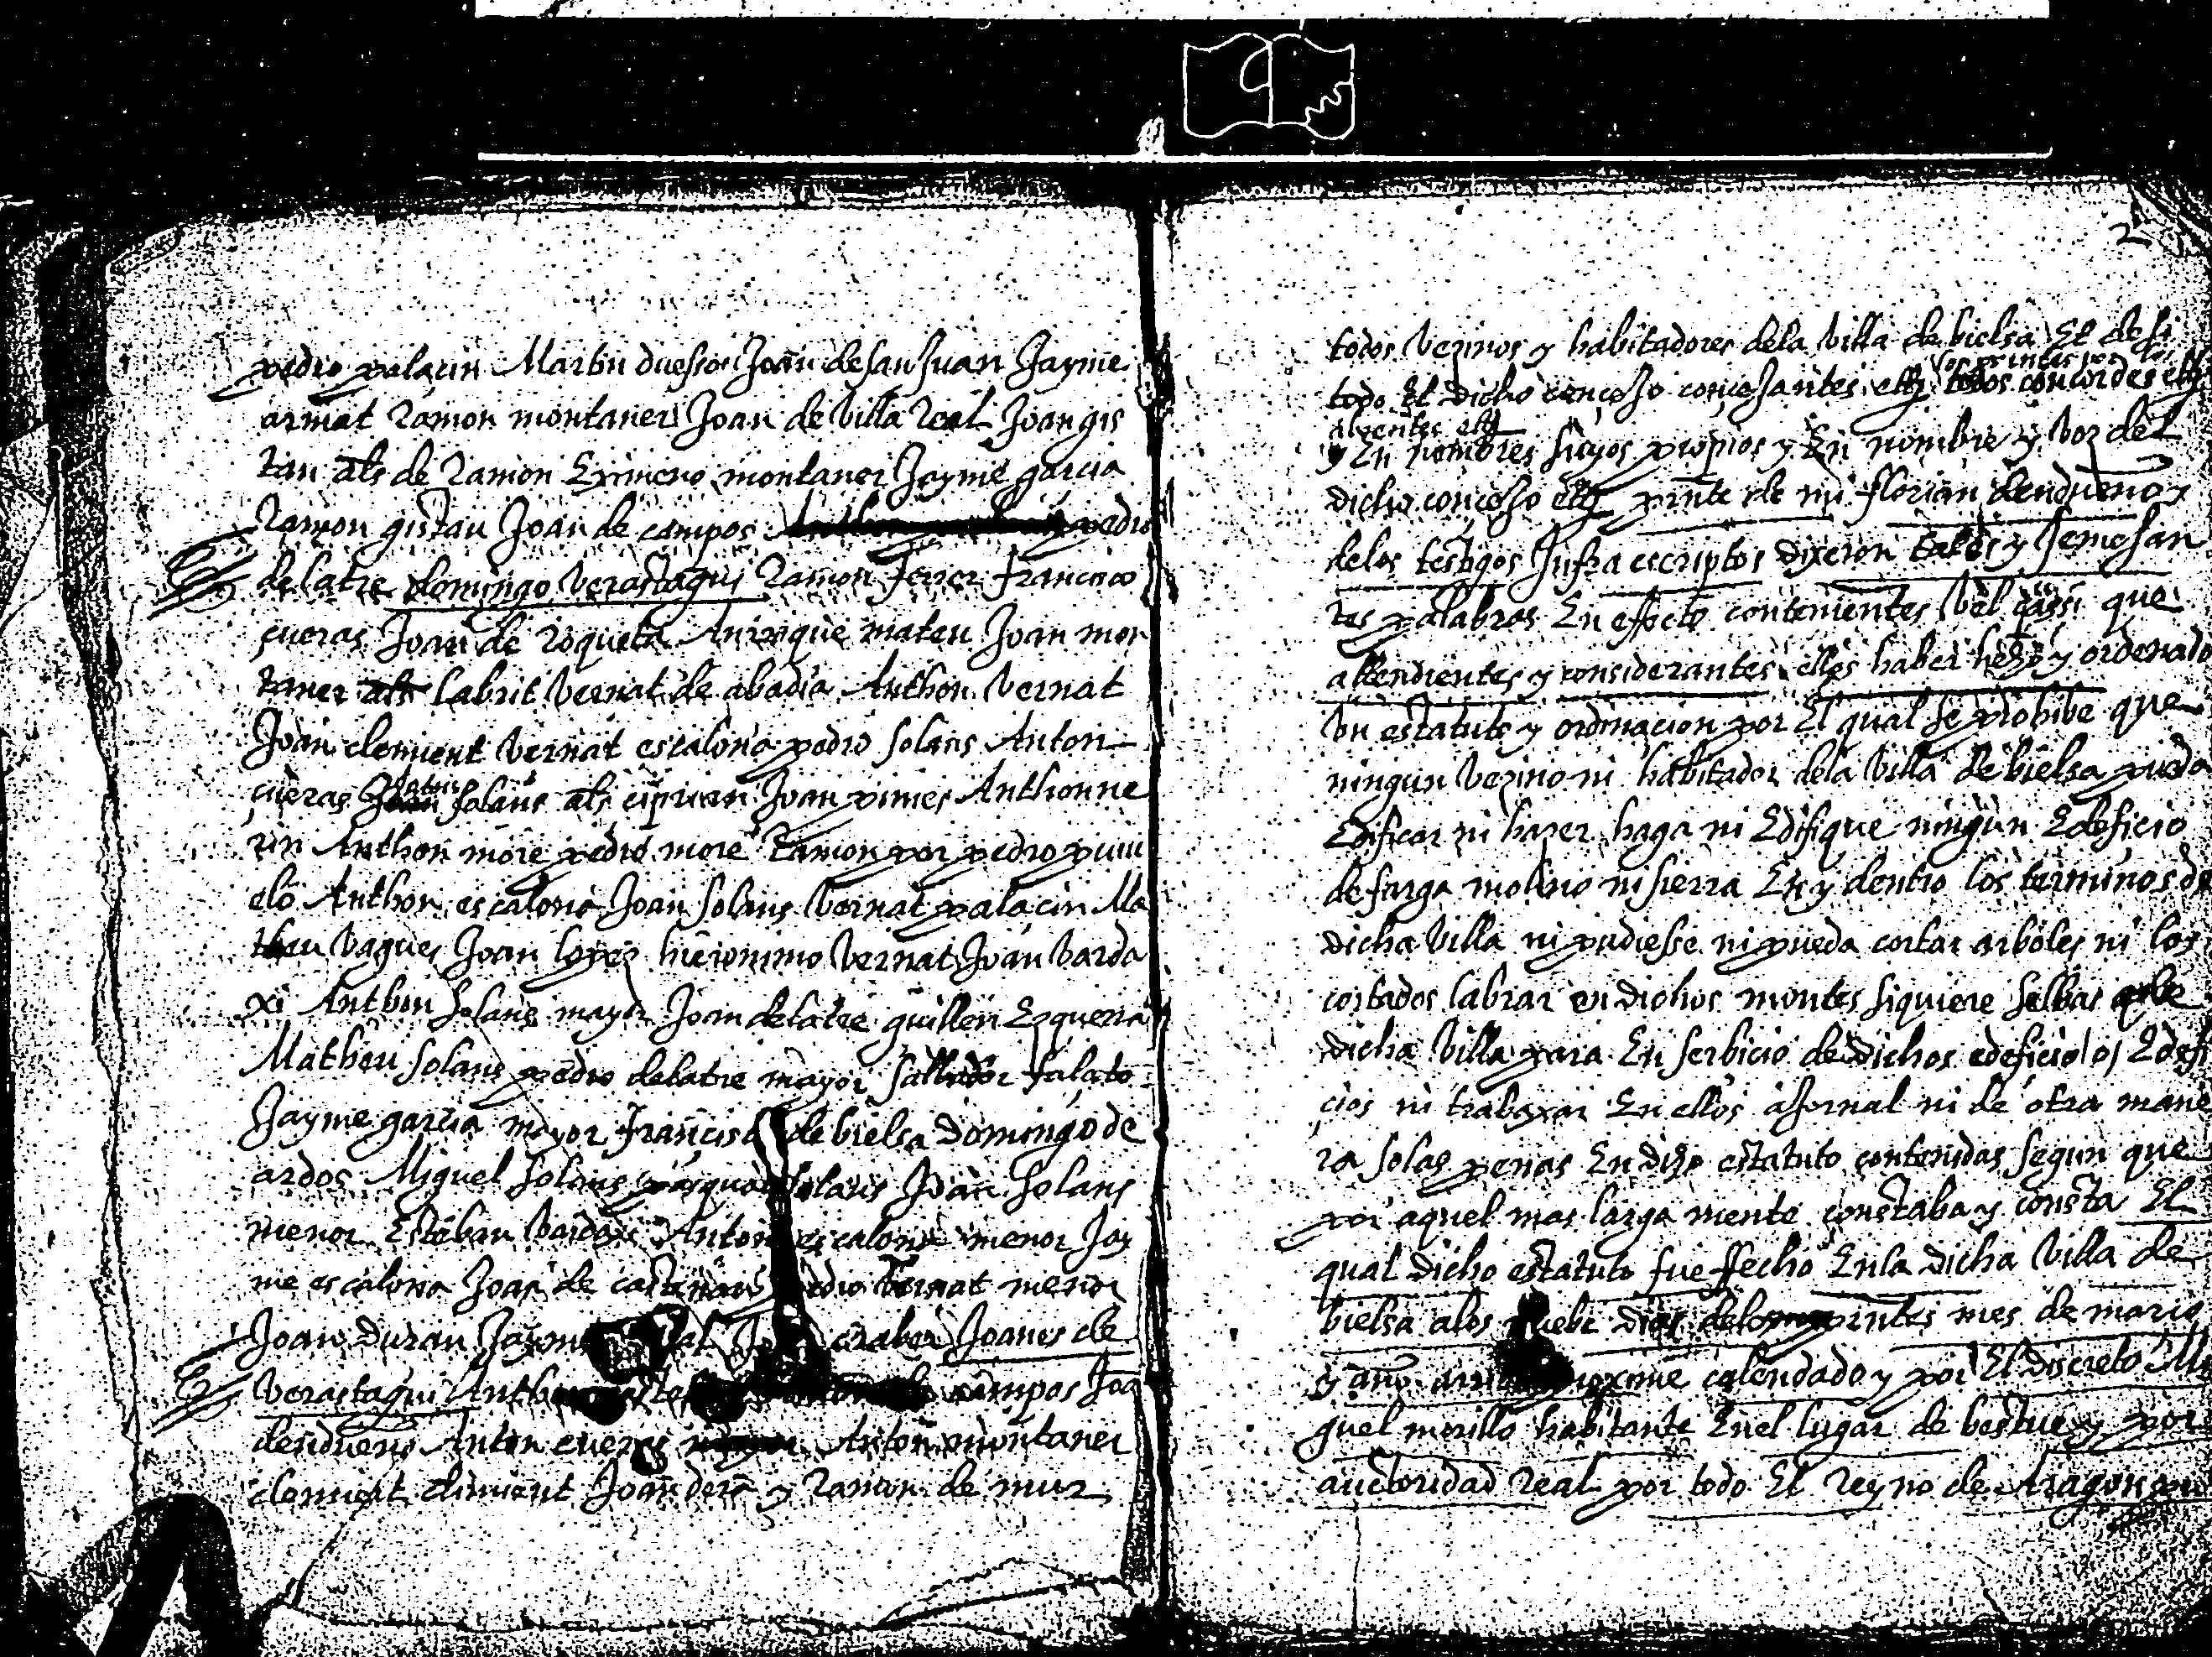 pedro palacin Martin duesso Joan de san Juan Jayme
armat Ramon montaner Joan de Villa Real Joan gis
tau als de Ramon Eximeno montaner Jayme garcia
Ramon gistau Joan de campos pedro
de latre domingo Verastagui Ramon ferrer francisco
cueras Joan de roqueta Anrique mateu Joan mon
taner als labrit Vernat de abadia Anthon Vernat
Joan climent Vernat escalona pedro solans Anton
cueras solans als ciprian Joan pimes Anthon ne
rin Anthon more pedro more Ramon por pedro puiu
elo Anthon escalona Joan solans Vernat palacin Ma
theu Vagues Joan lopez hieronimo Vernat Joan Varda
xi Anthon solans mayor Joan de latre guillen Ezquerra
Matheu solans pedro de latre mayor
Jayme garcia mayor francisco de bielsa Domingo de
ardos Miguel solans pasqual solans Joan solans
menor Esteban Vardaxi Anton escalona menor Jay
me escalona Joan de pedro Vernat menor
Joan Duran Jayme Joanes de
Verastagui campos Joan
dendueno Anton cueras Anton montaner
climent climent Joan dera y Ramon de mur
2
todos Vezinos y habitadores dela Villa de bielsa Et de si
los printes por los
todo El dicho concejo concejantes ettz todos concordes ettz
y En nombres suyos propios y En nombre y Voz del
dicho concejo ettz pnte de mi florian dendueno y
delos testigos Infra escriptos dixeron tales y semejan
tes palabras En effecto contenientes Vel quasi que
attendientes y considerantes ellos haber hecho y ordenado
Un estatuto y ordinacion por El qual se prohibe que
ningun Vezino ni habitador dela Villa de bielsa pueda
Edificar ni hazer haga ni Edifique ningun Edeficio
de farga molino ni sierra En y dentro los terminos de
dicha Villa ni pudiesse ni pueda cortar arboles ni los
cortados labrar en dichos montes siquiere selbas de
dicha Villa para En serbicio de dichos edeficio o Edefi
cios ni trabaxar En ellos a jornal ni de otra mane
ra solas penas En dicho estatuto contenidas segun que
por aquel mas larga mente constaba y consta El
qual dicho estatuto fue ffecho Enla dicha Villa de
bielsa alos dias printes mes de março
y año calendado y por El discreto Mi
guel morillo habitante Enel lugar de bestue y por
auctoridad Real por todo El Reyno de Aragon